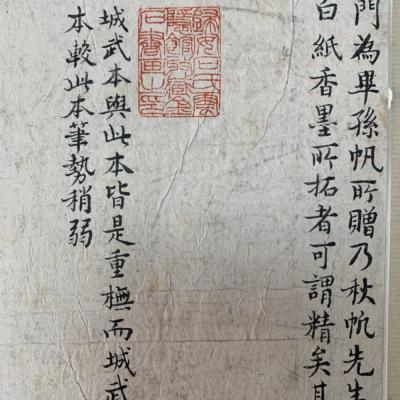 門為畢孫帆所贈乃秋帆先生
白紙香墨所拓者可謂精矣且
城武本與此本皆是重橅而城武
本較此本筆勢稍弱